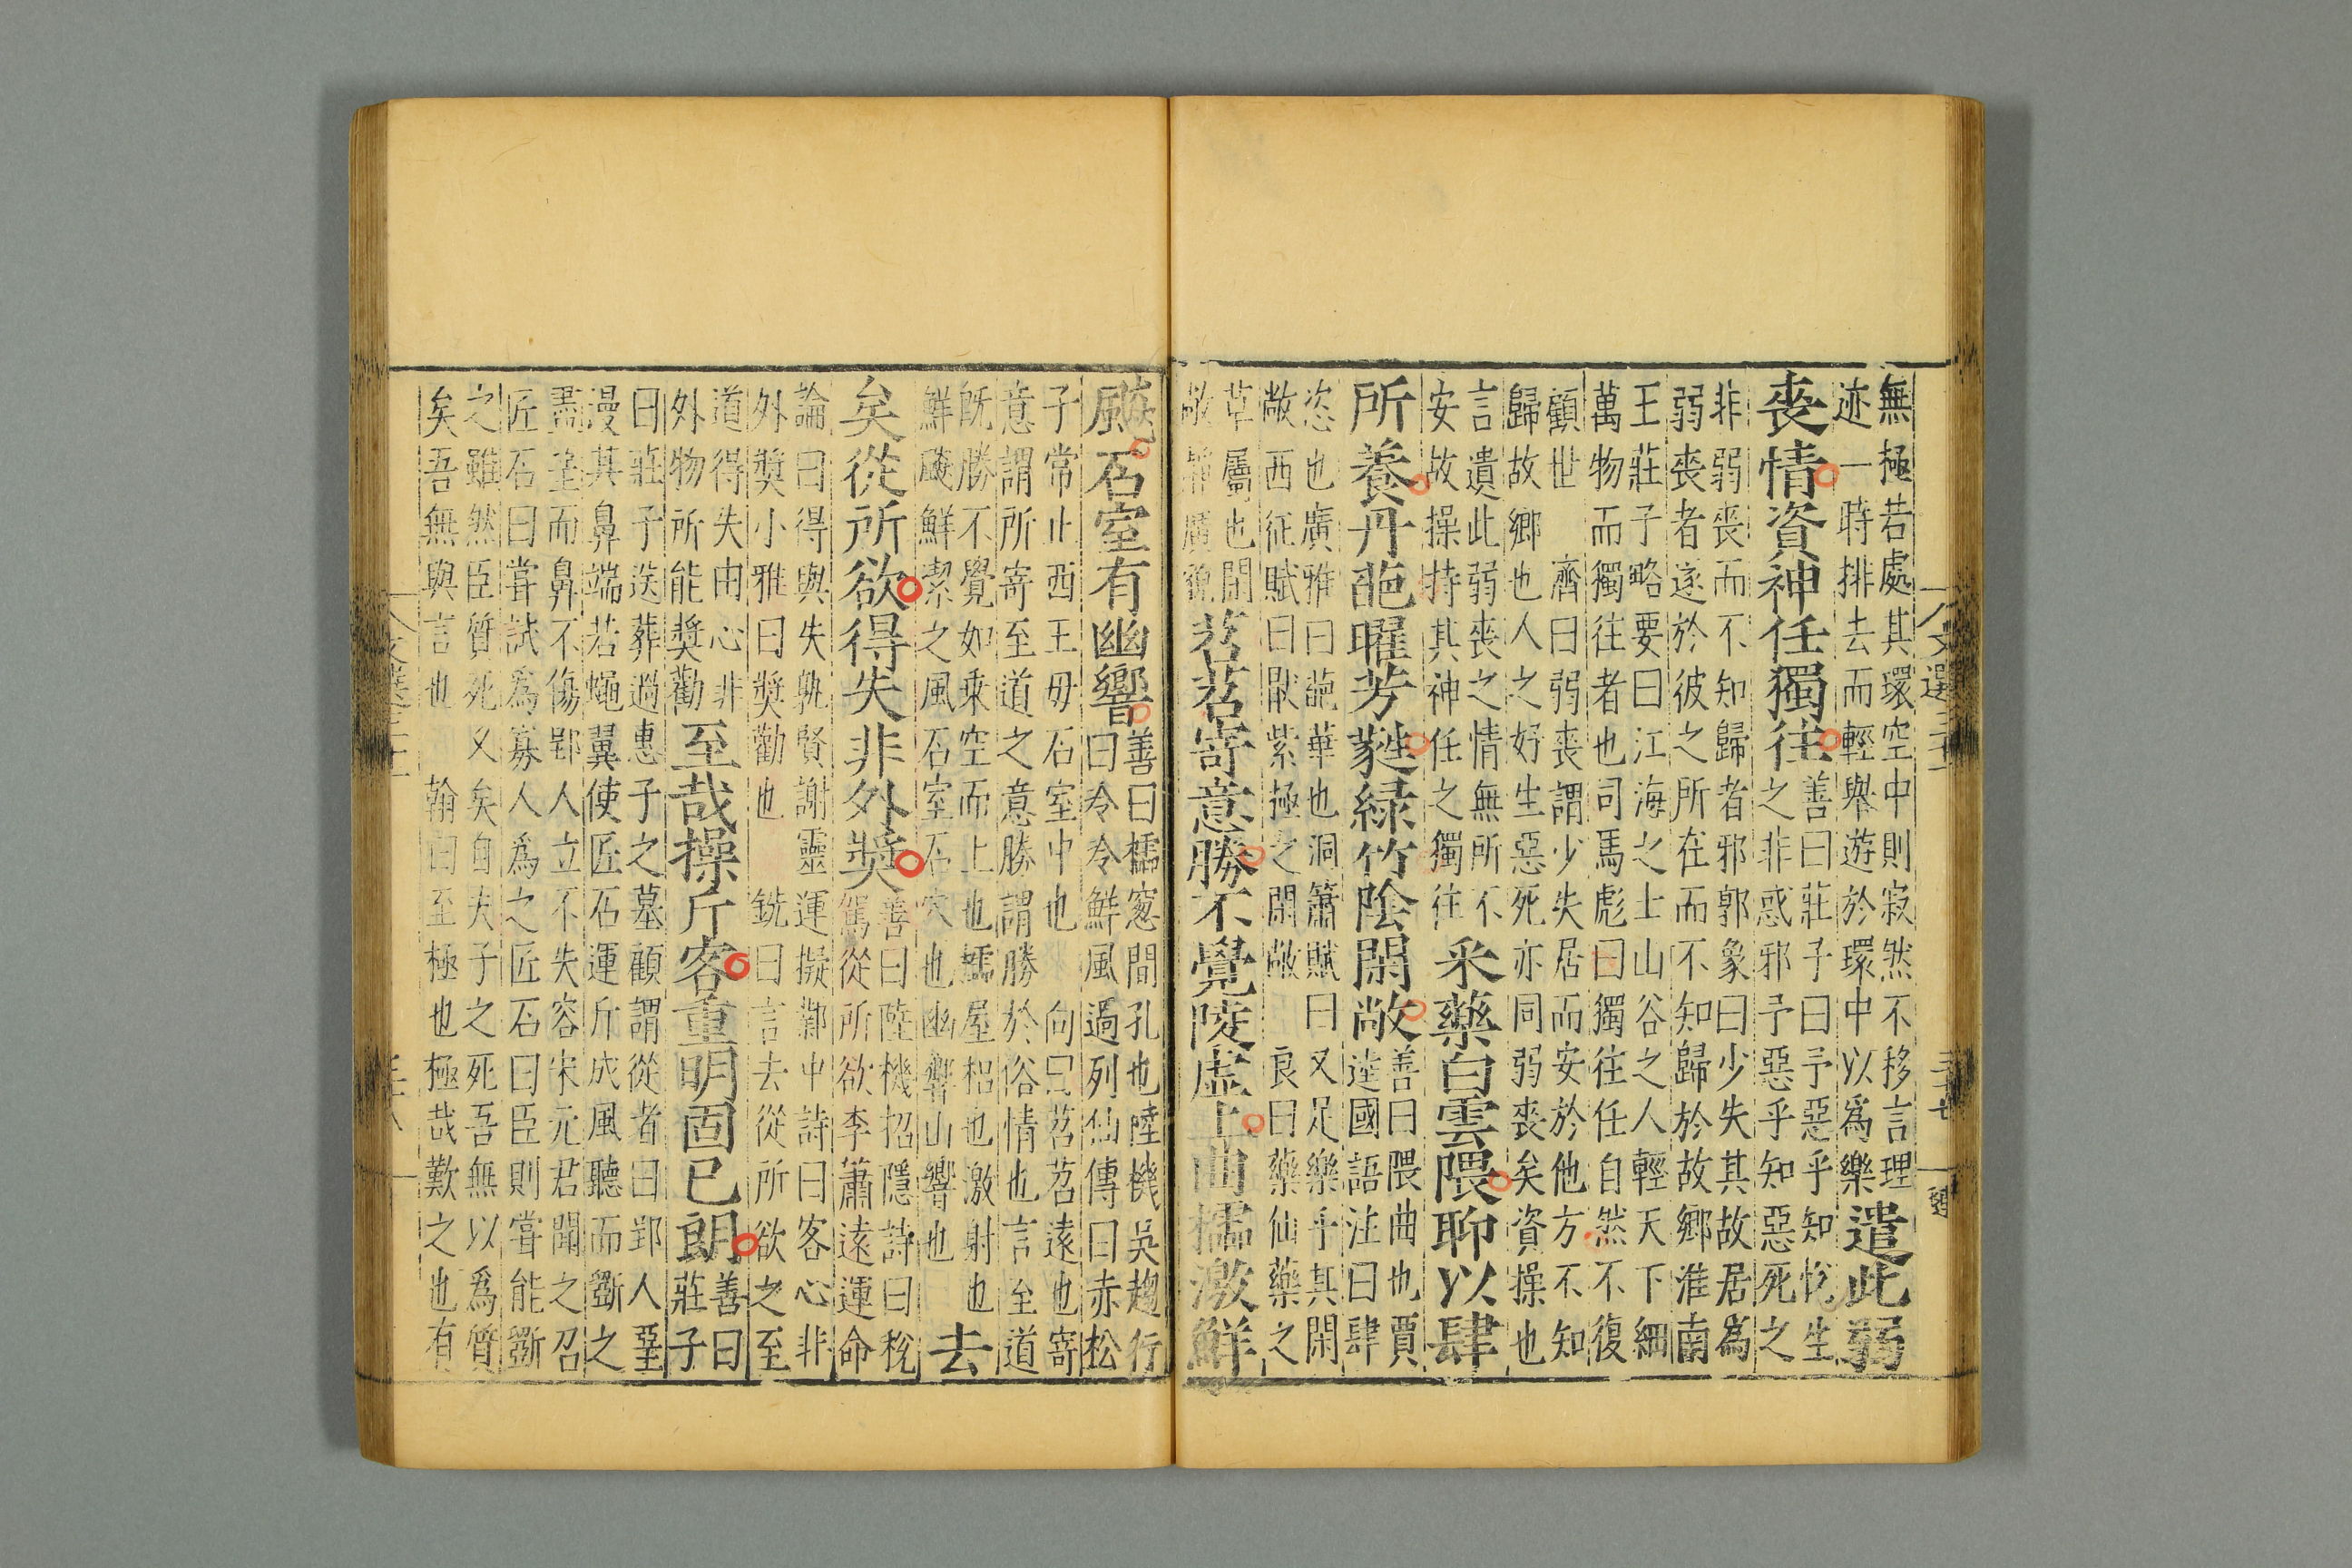 無極若處其環空中則寂然不移言理
迹一時排去而輕舉遊於環中以爲樂遣此弱
喪情資神任獨往善曰莊子曰予惡乎知恱生
之非惑邪予惡乎知惡死之
非弱喪而不知歸者邪郭象曰少失其故居為
弱喪者遂於彼之所在而不知歸於故鄉淮南
王莊子略要曰江海之士山谷之人輕天下細
萬物而獨往者也司馬彪曰獨往任自然不復
顧世 濟曰弱喪謂少失居而安於他方不知
歸故鄉也人之好生惡死亦同弱喪矣資操也
言遺此弱喪之情無所不
安故操持其神任之獨往采藥白雲隈聊以肆
所養丹葩曜芳蕤綠竹陰閑敞善曰隈曲也賈
逵國語注曰肆
恣也廣雅曰葩華也洞簫賦曰 又足樂乎其閑
敞西征賦曰厭紫極之閑敞 良曰藥仙藥之
草屬也閑
敞廣貌苕苕寄意勝不覺陵虛上曲櫺激鮮
飇石室有幽響善曰櫺窓間孔也陸機吳趨行
曰泠泠鮮風過列仙傳曰赤松
子常止西王母石室中也 向曰苕苕遠也寄
意謂所寄至道之意勝謂勝於俗情也言至道
旣勝不覺如乘空而上也櫺屋梠也激射也
鮮飇鮮潔之風石室石穴也幽響山響也去
矣從所欲得失非外奬善曰陸機招隱詩曰稅
駕從所欲李蕭遠運命
論曰得與失孰賢謝靈運擬鄴中詩曰客心非
外奬小雅曰奬勸也 銑曰言去從所欲之至
道得失由心非
外物所能奬勸至哉操斤客重明固已朗善曰
莊子
曰莊子送葬過惠子之墓顧謂從者曰郢人堊
漫其鼻端若蠅翼使匠石運斤成風聽而斲之
盡堊而鼻不傷郢人立不失容宋元君聞之召
匠石曰嘗試爲寡人爲之匠石曰臣則嘗能斲
之雖然臣質死久矣自夫子之死吾無以爲質
矣吾無與言也 翰曰至極也極哉歎之也有